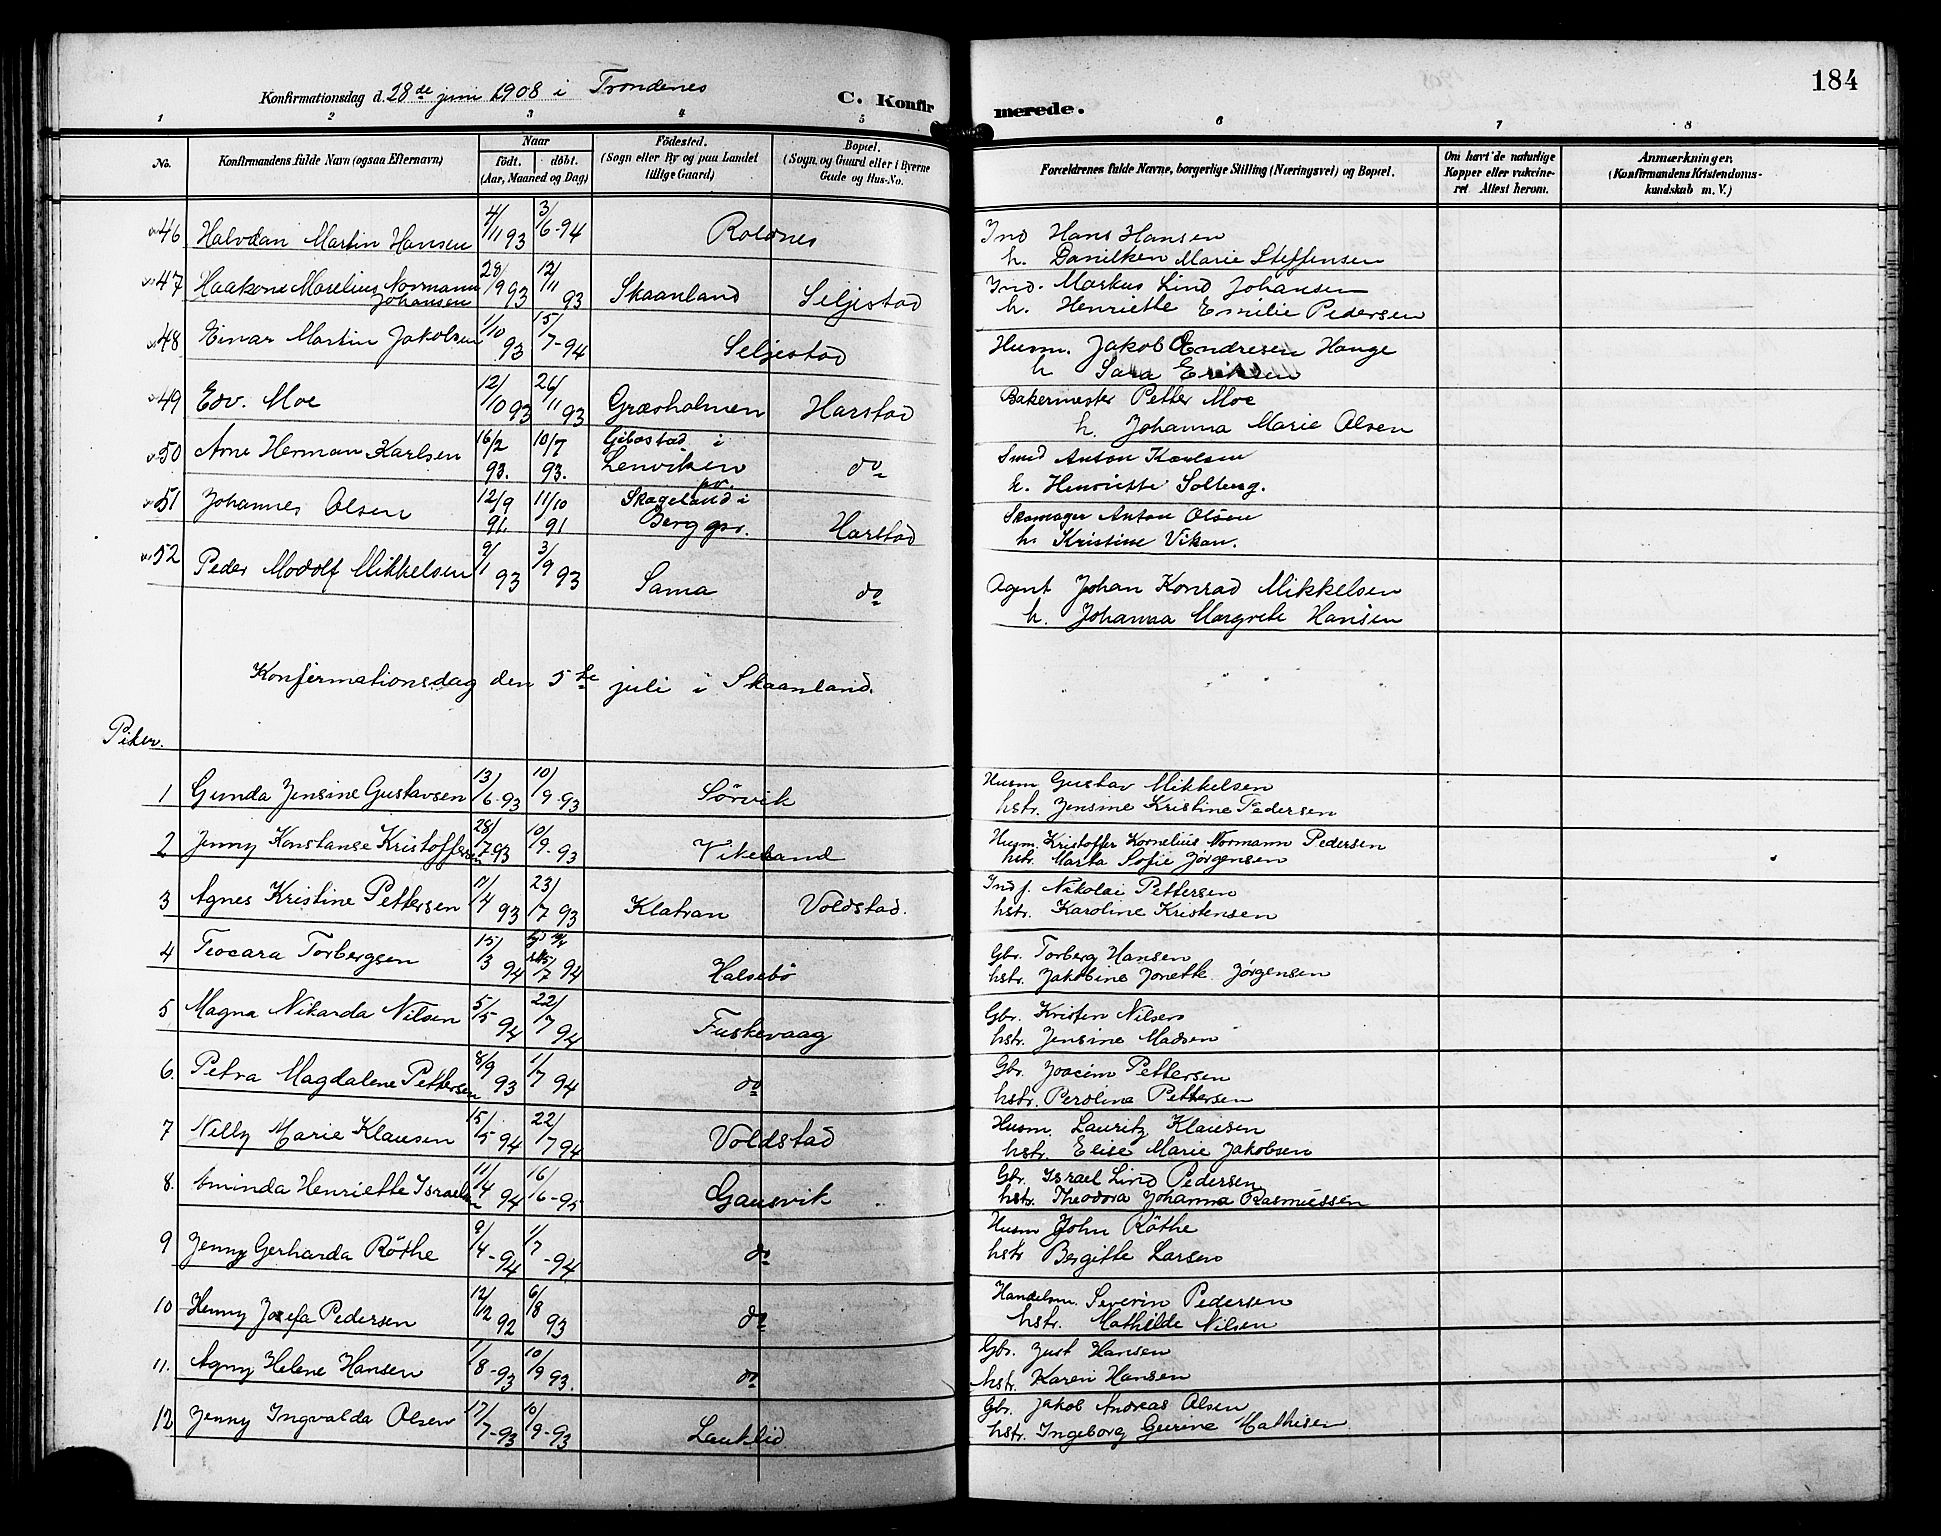 184
Konfirmationsdag d. 28de juni 1908 i Trondenes
C. Konfirmerede.
1 2 3 4 5 6 7 8
No.
Konfirmandens fulde Navn (ogsaa Efternavn)
Naar
födt. döbt.
(Aar, Maaned og Dag)
Födested.
(Sogn eller By og paa Landet
tillige Gaard)
Bopæl.
(Sogn og Gaard eller i Byerne
Gade og Hus-No.
Forældrenes fulde Navne, borgerlige Stilling (Næringsvei) og Bopæl.
Om havt de naturlige
Kopper eller vakcine-
ret Attest herom.
Anmærkninger.
(Konfirmandens Kristendoms-
kundskab m. V.)
46 Halvdan Martin Hansen 4/11 93 3/6-94 Roldnes Ind Hans Hansen
h. Danilken Marie Steffensen
47 Haakon Marelius Normann Johansen 28/9 93 12/11 93 Skaanland Seljestad Ind. Markus Lind Johansen
h. Henriette Emilie Pedersen
48 Einar Martin Jakobsen 1/10 93 15/7-94 Seljestad Husm. Jakob Endresen Hauge
h Sara Eriksen
49 Edv. Moe 12/10 93 26/11 93 Græsholmen Harstad Bakermester Petter Moe
h. Johanna Marie Olsen
50 Arne Herman Karlsen 16/2 93. 10/7 93. Gibostad i Lenviken pr. do Smed Anton Karlsen
h. Henriette Solberg.
51 Johannes Olsen 12/9 91 11/10 91 Skageland i Berg gpr. Harstad Skomager Anton Olsen
h. Kristine Vikan.
52 Peder Modolf Mikkelsen 9/1 93 3/9 93 Sama do Agent Johan Konrad Mikkelsen
h. Johanna Margrete Hansen
Konfirmationsdag den 5te juli i Skaanland.
Piker.
1 Gunda Jensine Gustavsen 13/6-93 10/9-93 Sörvik Husm Gustav Mikkelsen
hstr. Jensine Kristine Pedersen
2 Jenny Konstanse Kristoffersen 28/7-93 10/9-93 Vikeland Husm. Kristoffer Kornelius Normann Pedersen
hstr. Marta Sofie Jørgensen
3 Agnes Kristine Pettersen 11/4 93 23/7 93 Klatran Voldstad. Ind f. Nikolai Pettersen
hstr. Karoline Kristensen
4 Teocara Torbergsen 15/3 94 /7 94 Halsebö Gbr. Torberg Hansen
hstr. Jakobine Jonette Jørgensen
5 Magna Nikarda Nilsen 5/5 94 22/7 94 Fuskevaag Gbr. Kristen Nilsen
hstr. Jensine Madsen
6. Petra Magdalene Pettersen 8/9 93 1/7 94 do Gbr. Joacim Pettersen
hstr. Peroline Pettersen
7 Nelly Marie Klausen 15/5 94 22/7 94 Voldstad Husm. Lauritz Klausen
hstr. Elise Marie Jakobsen
8. Aminda Henriette Israelsen 11/4 94 16/6-95 Gausvik Gbr. Israel Lind Pedersen
hstr. Theodora Johanna Rasmussen
9 Jenny Gerharda Röthe 9/4-94 1/7-94 do Husm John Röthe
hstr Bergitte Larsen
10 Henny Josefa Pedersen 12/12 92 6/8 93 do Handelsm. Severin Pedersen
hstr. Mathilde Nilsen
11. Agny Helene Hansen 1/8-93 10/9 93. do Gbr. Just Hansen
hstr. Karen Hansen
12 Jenny Ingvalda Olsen 17/7-93 10/9-93 Lauklid Gbr. Jakob Andreas Olsen
hstr. Ingeborg Gurine Mathisen